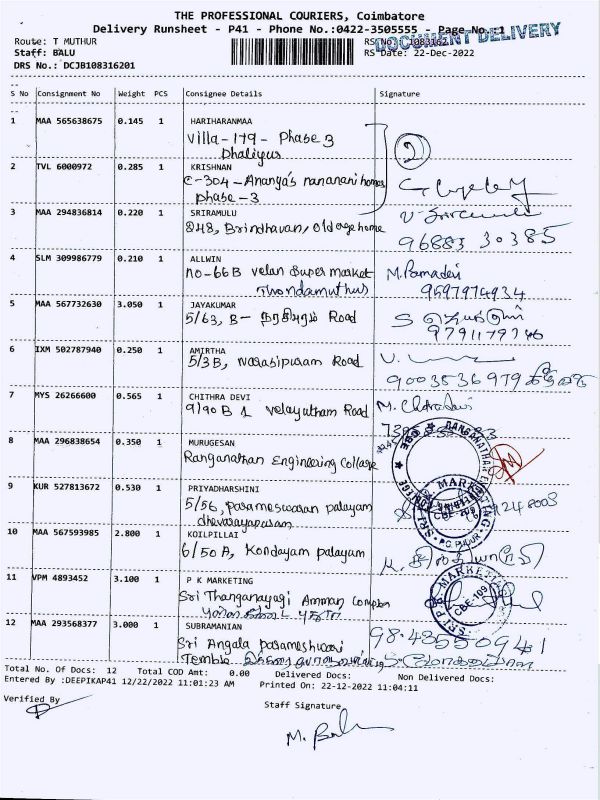 THE PROFESSIONAL COURIERS, Coimbatore
Delivery Runsheet - P41 - Phone No.:0422-3505555 - Page No.:1
DOCUMENT DELIVERY
Route: T MUTHUR
RS No.: 1083162
Staff: BALU
RS Date: 22-Dec-2022
DRS No.: DCJB108316201
S No Consignment No Weight PCS Consignee Details Signature
1 MAA 565638675 0.145 1 HARIHARANMAA
Villa-179- Phase 3
Dhaliyur
2 TVL 6000972 0.285 1 KRISHNAN
C-304-Ananya's nananani homes
phase-3
3 MAA 294836814 0.220 1 SRIRAMULU
248, Brindhavan, old age home
96883 30385
4 SLM 309986779 0.210 1 ALLWIN
no-66B velan super market M. Ramadevi
Thondamuthur 9597974934
5 MAA 567732630 3.050 1 JAYAKUMAR
5/63, B- Road
9791179746
6 IXM 502787940 0.250 1 AMIRTHA
5/3B, Narasipuram Road
9003536979
7 MYS 26266600 0.565 1 CHITHRA DEVI
9/90 B 1 velayutham Road M. Chitradevi
8 MAA 296838654 0.350 1 MURUGESAN
Ranganathan Engineering College
9 KUR 527813672 0.530 1 PRIYADHARSHINI
5/56, parameswaran palayam
devarayapuram
10 MAA 567593985 2.800 1 KOILPILLAI
6/50 A, Kondayam palayam
11 VPM 4893452 3.100 1 P K MARKETING
Sri Thanganayagi Amman Complex
12 MAA 293568377 3.000 1 SUBRAMANIAN
98-43550941
Sri Angala parameshwari
Temble
Total No. Of Docs: 12 Total COD Amt: 0.00 Delivered Docs: Non Delivered Docs:
Entered By :DEEPIKAP41 12/22/2022 11:01:23 AM Printed On: 22-12-2022 11:04:11
Verified By
Staff Signature